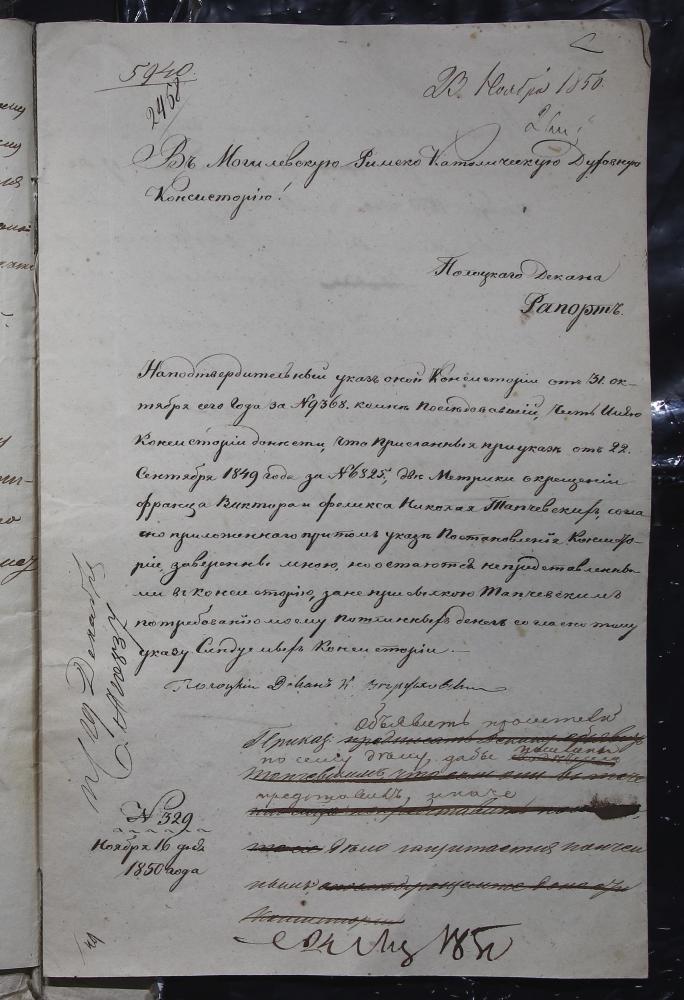 5940.
2468
23. Ноября 1850.
Въ Могилевскую Римско Католическую Духовную
Консисторію!
Полоцкаго Декана
Рапортъ.
На подтвердительный указъ оной Консисторіи отъ 31. ок-
тября сего года за №9368. комнѣ послѣдовавшій, честь имѣю
Консисторіи донести, что присланныя при указѣ отъ 22.
Сентября 1849 года за №6825, двѣ Метрики о крещеніи
Франца Виктора и Феликса Николая Тапчевскихъ, согла
сно приложеннаго притомъ указѣ Постановленія Консисто-
ріи, заверенны мною, но остаются непредставленны-
ми въ консисторію, за не присылкою Тапчевскимъ
по требованію моему пошлинныхъ денегъ согласно тому
указу Слѣдуемыхъ Консисторіи.
Полоцкій Деканъ К.
объявить просителю
Приказ. предписать Декану объявить
по сему дѣлу, дабы пошлины
Тапчевскимъ что если они въ
представилъ, иначе
дѣло
24
№ 329
Ноября 16 дня
1850 года
19 Декабря
№10837